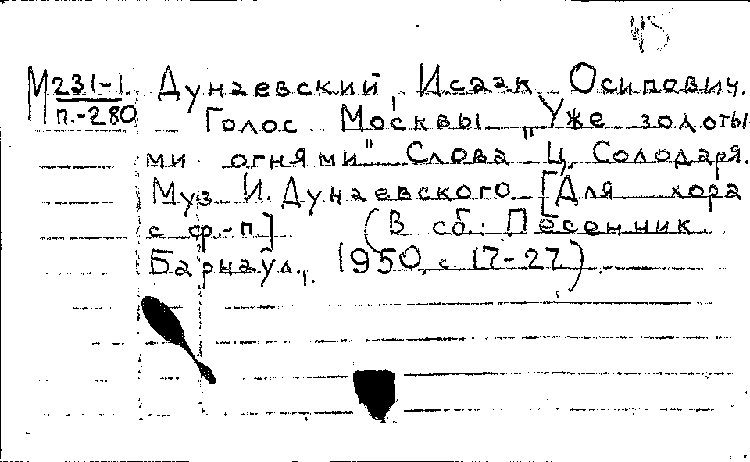 45
М231-1. Дунаевский, Исаак Осипович.
п.-280 Голос Москвы „Уже золоты
ми огнями" Слова Ц. Солодаря.
Муз И. Дунаевского [Для хора
с ф.-п] (В сб.: Песенник
Барнаул, 1950, с 17-27)